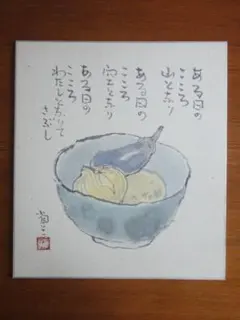 ある日の
こころ
山となり
ある日の
こころ
雲となり
ある日の
こころ
わたしとなりて
さぶし